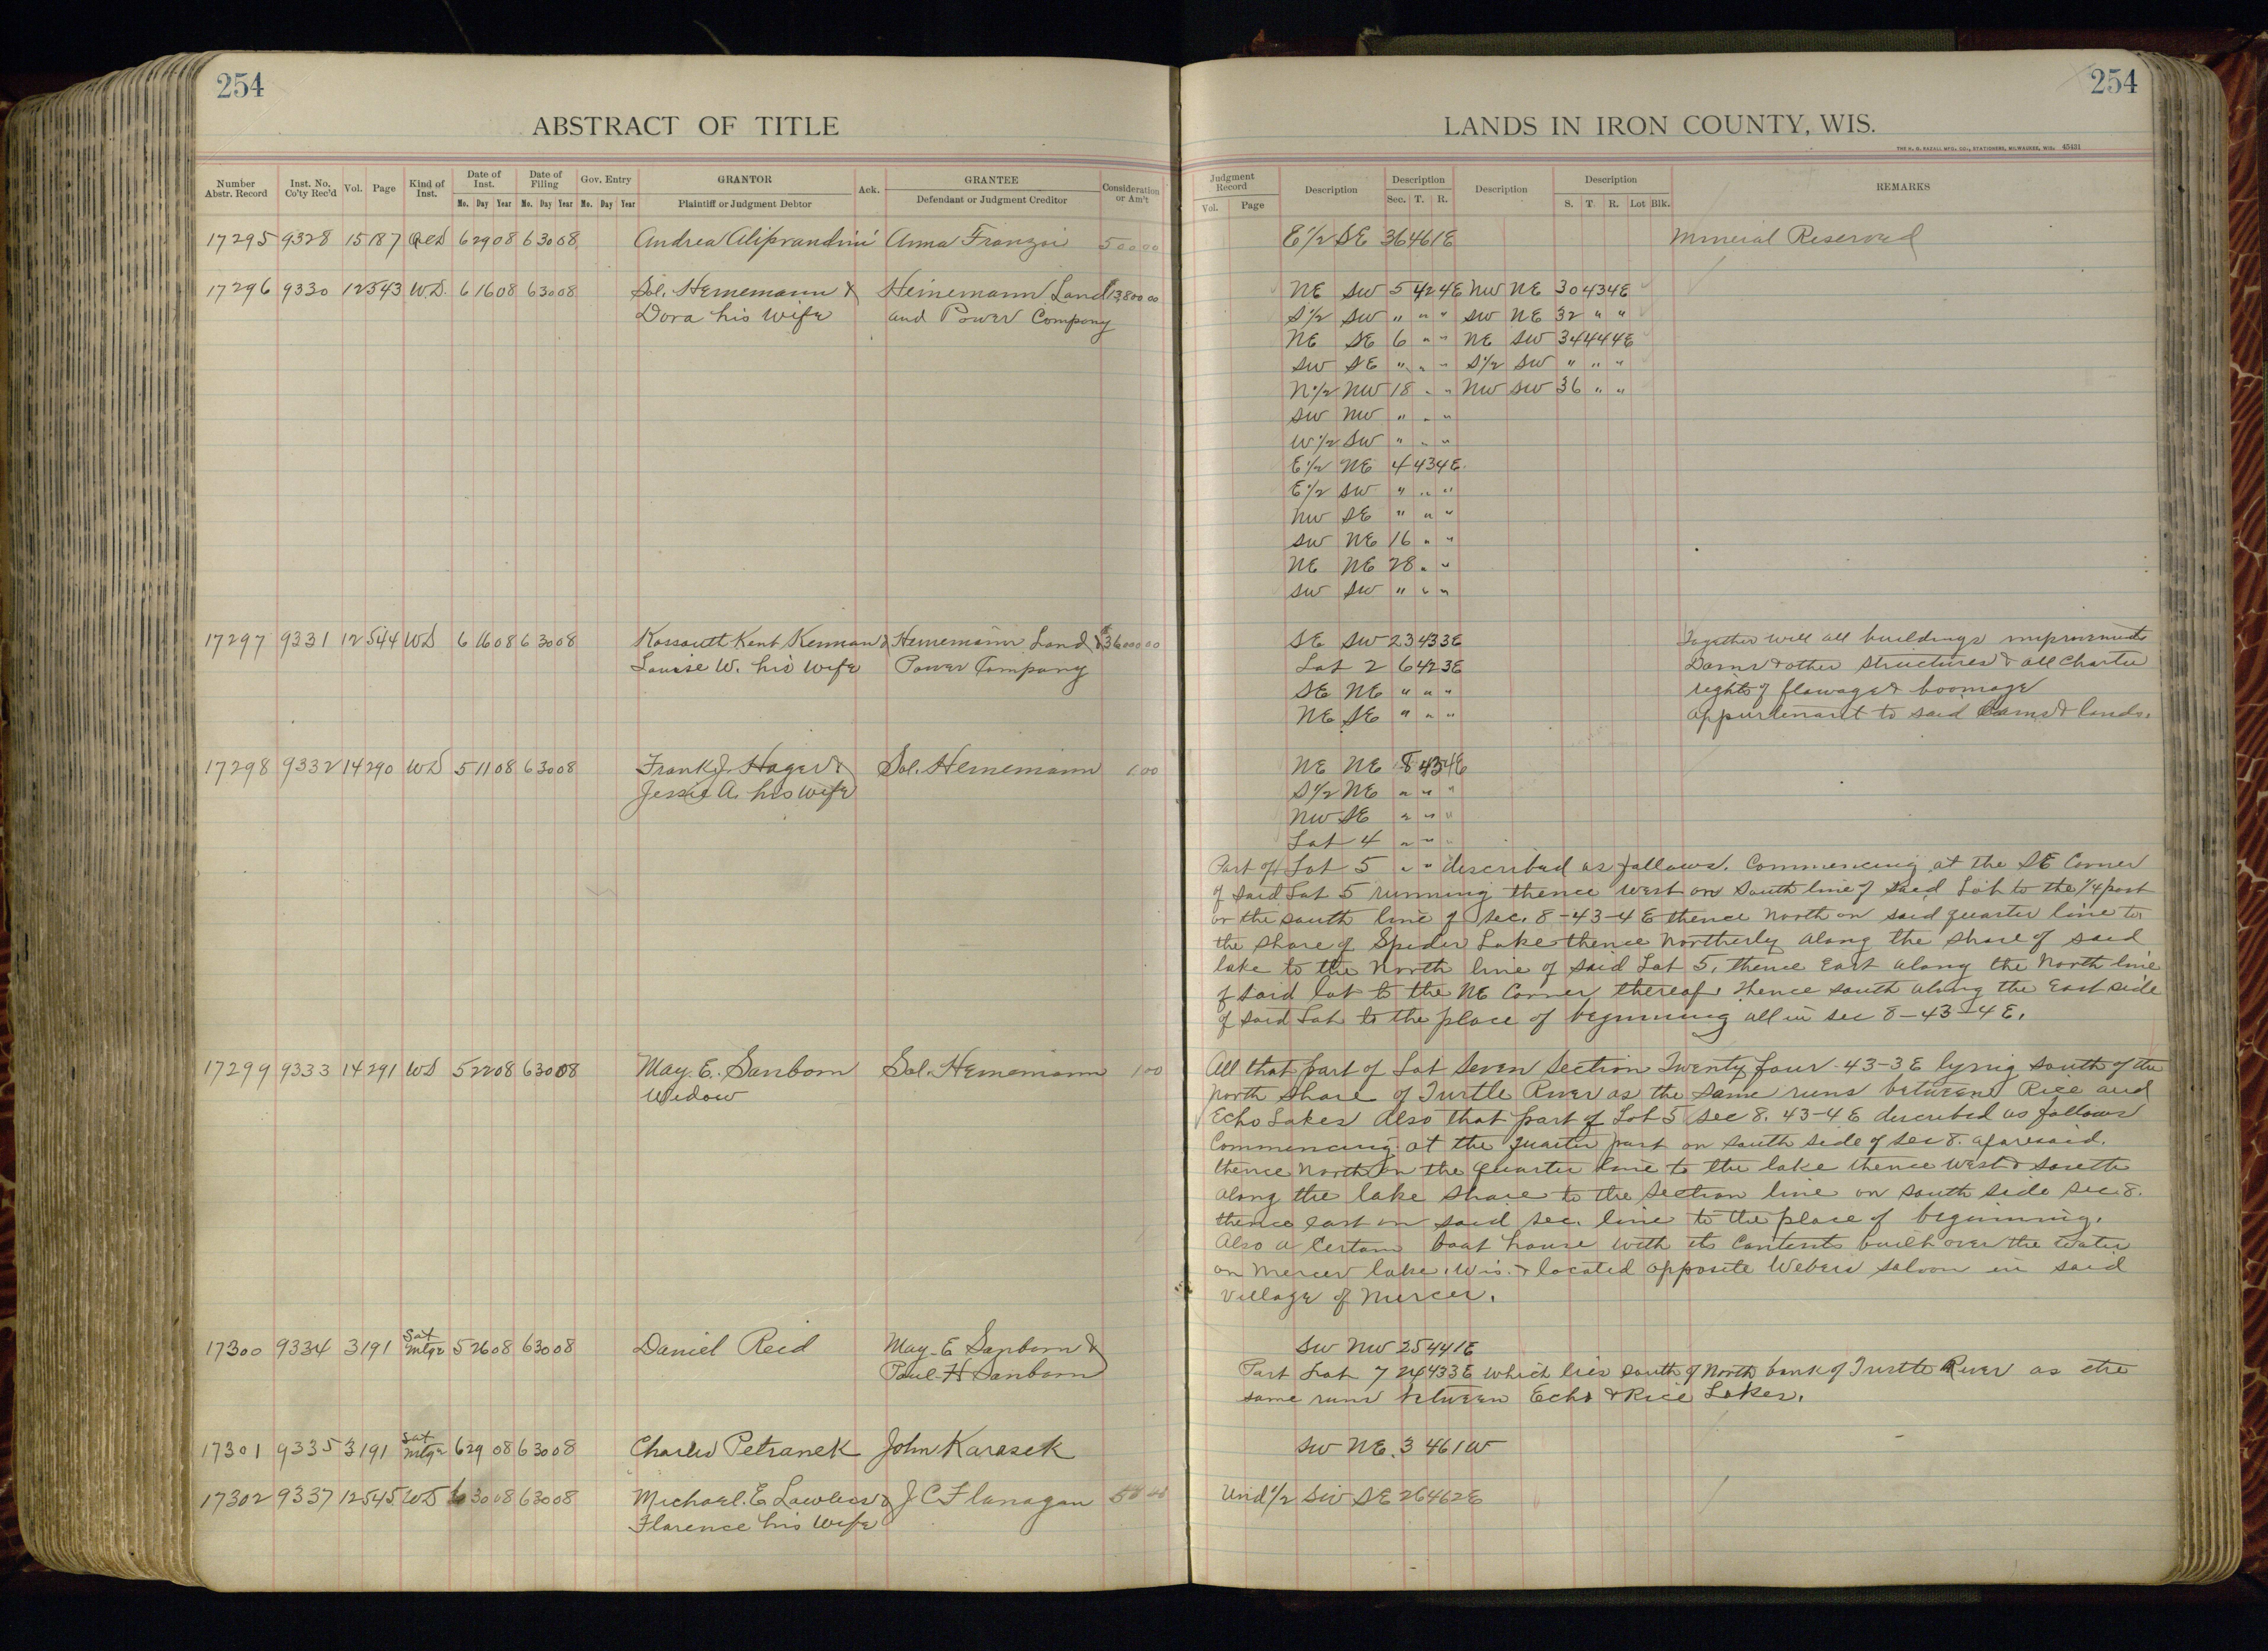 254
254
ABSTRACT OF TITLE
LANDS IN IRON COUNTY, WIS.
THE H. H. RAZALL MFG. CO., STATIONERS, MILWAUKEE, WIS. 45431
Number Abstr. Record Inst. No. Co'ty Rec'd Vol. Page Kind of Inst. Date of Inst. Date of Filing Gov. Entry GRANTOR Ack. GRANTEE Consideration or Am't
Mo. Day Year Mo. Day Year Mo. Day Year Plaintiff or Judgment Debtor Defendant or Judgment Creditor
Judgment Record Description Description Description Description REMARKS
Vol. Page Sec. T. R. S. T. R. Lot Blk.
17295 9328 15 187 QCD 6 29 08 6 30 08 Andrea Aliprandini Anna Franzoi 500 00 E 1/2 SE 36 46 1E Mineral Reserved
17296 9330 12 543 W.D. 6 16 08 6 30 08 Sol. Heinemann & Heinemann Land 13800 00 NE SW 5 42 4E NW NE 30 43 4E
Dora his wife and Power Company S 1/2 SW " " " SW NE 32 " "
NE SE 6 " " NE SW 34 44 4E
SW SE " " " S 1/2 SW " " "
N 1/2 NW 18 " " NW SW 36 " "
SW NW " " "
W 1/2 SW " " "
E 1/2 NE 4 43 4E
E 1/2 SW " " "
NW SE " " "
SW NE 16 " "
NE NE 28 " "
SW SW " " "
17297 9331 12 544 WD 6 16 08 6 30 08 Kossouth Kent Kennan & Heinemann Land & 36000 00 SE SW 23 43 3E Together will all buildings improvements
Louise W. his wife Power Company Lot 2 6 42 3E Dams & other structures & all charter
SE NE " " " rights of flowage & boomage
NE SE " " " appurtenant to said Dams & lands.
17298 9332 14 290 WD 5 11 08 6 30 08 Frank J. Hager & Sol. Heinemann 1.00 NE NE 8 43 4E
Jessie A. his wife S 1/2 NE " " "
NW SE " " "
Lot 4 " " "
Part of Lot 5 " " described as follows. Commencing at the SE Corner
of said Lot 5 running thence West on South line of said Lot to the 1/4 post
on the south line of sec. 8-43-4E thence North on said quarter line to
the shore of Spider Lake thence Northerly along the shore of said
lake to the North line of said Lot 5, thence East along the North line
of said lot to the NE Corner thereof, thence south along the East side
of said Lot to the place of beginning all in sec 8-43-4E.
17299 9333 14 291 WD 5 22 08 6 30 08 May. E. Sanborn Sol. Heinemann 1 00 All that part of Lot Seven Section Twenty four 43-3E lying south of the
Widow North Shore of Turtle River as the same runs between Rice and
Echo Lakes Also that part of Lot 5 sec 8. 43-4E described as follows
Commencing at the quarter post on south side of sec 8. aforesaid.
thence North on the quarter line to the lake thence West & South
along the lake shore to the section line on south side sec. 8.
thence east on said sec. line to the place of beginning.
Also a Certain boat house with its contents built over the water
on Mercer lake, Wis. & located opposite Webers saloon in said
village of Mercer.
17300 9334 3 191 Sat Mtge 5 26 08 6 30 08 Daniel Reid May. E Sanborn & SW NW 25 44 1E
Paul H Sanborn Part Lot 7 24 43 3E which lies south of North bank of Turtle River as the
same runs between Echo & Rice Lakes.
17301 9335 3 191 Sat Mtge 6 29 08 6 30 08 Charles Petranek John Karasek SW NE. 3 46 1W
17302 9337 12 545 WD 6 30 08 6 30 08 Michael. E Lawless & J C Flanagan Und 1/2 SW SE 26 46 2E
Florence his wife